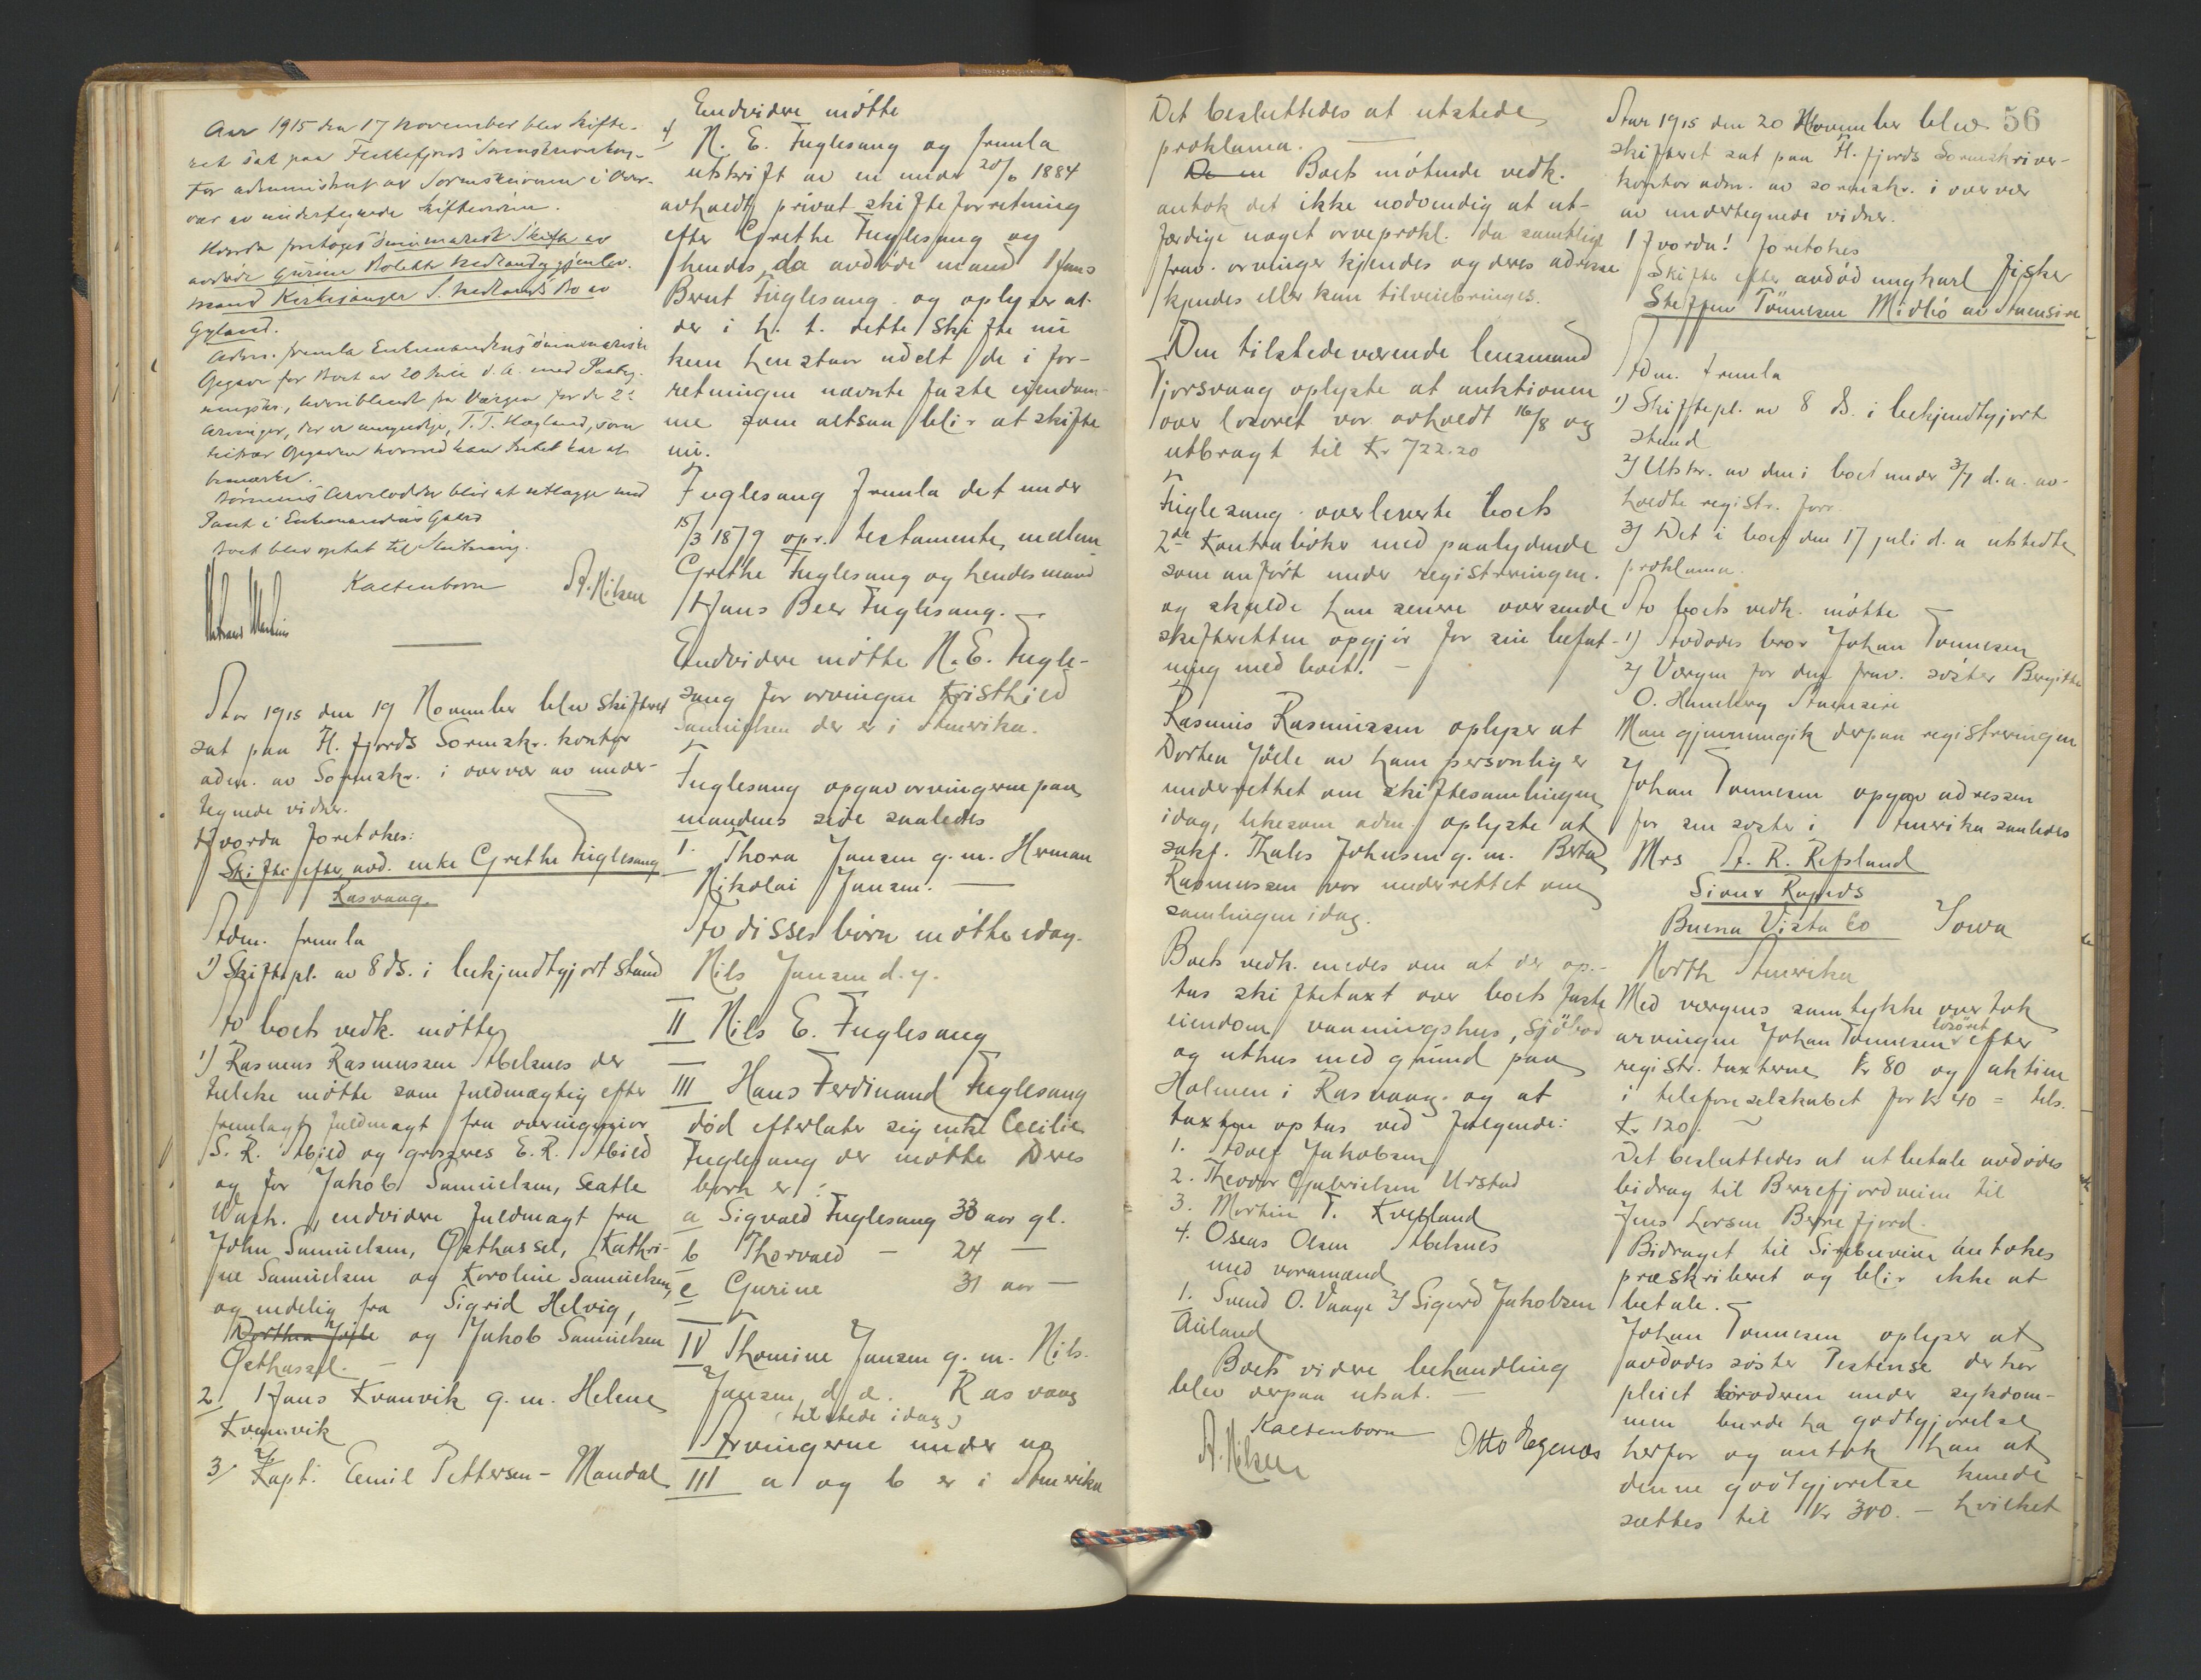 Aar 1915 den 17 November blev skifte-
ret sat paa Flekkefjords Sorenskriverkon-
tor administrert av Sorenskriveren i Over-
vær av undertegnede skiftevidner.
Hvorda foretoges Summarisk Skifte av
avdøde Gurine Bolette Hedlands gjenlev.
mand Kirkesanger S. Hedlands Bo av
Gyland.
Adm. fremla Enkemandens summariske
Opgave for Boet av 20 Juli d. A. med Paateg-
ninger, heriblandt fra Værgen for de 2de
Arvinger, der er umyndige, T. T. Hægland, som
tiltrær Opgaven hvormed han Intet har at
bemærke.
Børnenes Arvelodder blir at utlægge med
Pant i Enkemandens Gaard
Boet blev optat til Slutning.
Kaltenborn A. Nilsen
Aar 1915 den 19 November blev skifteret
sat paa Fl. fjords Sorenskr. kontor
adm. av Sorenskr. i overvær av under-
tegnede vidner.
Hvorda foretokes:
Skifte efter avd. enke Grethe Fuglesang
Rasvaag.
Adm. fremla
1) Skiftepl. av 8 ds. i bekjendtgjort stand
Av boets vedk. møtte
1) Rasmus Rasmussen Abelsnes der
tillike møtte som fuldmægtig efter
fremlagt fuldmagt fra overingeniør
S. R. Abild og grosseres E. R. Abild
og for Jakob Samuelsen, Seatle
Wash., endvidere fuldmagt fra
John Samuelsen, Østhassel, Kathri-
ne Samuelsen og Karoline Samuelsen,
og endelig fra Sigrid Helvig,
Dorthea Jøle og Jakob Samuelsen
Østhassel. —
2 Hans Kvanvik g. m. Helene
Kvanvik
3) Kapt. Emil Pettersen - Mandal
Endvidere møtte
4) N. E. Fuglesang og fremla
utskrift av en under 20/6 1884
avholdt privat skifteforretning
efter Grethe Fuglesang og
hendes da avdøde mand Hans
Bernt Fuglesang. og oplyser at
der i h. t. dette skifte nu
kun henstaar udelt de i for-
retningen nævnte faste eiendom-
me som altsaa blir at skifte
nu.
Fuglesang fremla det under
15/3 1879 opr. testamente mellem
Grethe Fuglesang og hendes mand
Hans Beer Fuglesang. —
Endvidere møtte N. E. Fugle-
sang for arvingen Kristhild
Samuelsen der er i Amerika.
Fuglesang opgav arvingerne paa
mandens side saaledes
I. Thora Jansen g. m. Herman
Nikolai Jansen. —
Av disses børn møtte idag.
Nils Jansen d. y.
II Nils E. Fuglesang
III Hans Ferdinand Fuglesang
død efterlater sig enke Cecilie
Fuglesang der møtte Deres
børn er:
a Sigvald Fuglesang 33 aar gl.
b Thorvald — 24 —
c Gurine 31 aar —
IV Thomine Jansen g. m. Nils
Jansen d. æ. Rasvaag
(tilstede idag)
Arvingerne under no
III a og b er i Amerika
Det besluttedes at utstede
proklama. —
De en Boets møtende vedk.
antok det ikke nødvendig at ut-
færdige noget arveprokl. da samtlige
frav. arvinger kjendes og deres adresse
kjendes eller kan tilveiebringes.
Den tilstedeværende lensmand
Tjorsvaag oplyste at auktionen
over løsøret var avholdt 16/8 og
utbragt til Kr 722.20
Fuglesang overleverte boets
2de Kontrabøker med paalydende
som anført under registreringen.
og skulde han senere oversende
skifteretten opgjør for sin befat-
ning med boet. —
Rasmus Rasmussen oplyser at
Dorthea Jölle av ham personlig er
underrettet om skiftesamlingen
idag, likesom adm. oplyste at
sakf. Thales Johnsen g. m. Berta
Rasmussen var underrettet om
samlingen idag.
Boets vedk. enedes om at der op-
tas skiftetaxt over boets faste
eiendom vaaningshus, sjøbod
og uthus med grund paa
Holmen i Rasvaag. og at
taxten optas ved følgende:
1. Adolf Jakobsen
2. Theodor Gabrielsen Urstad
3. Martin T. Kvelland
4. Oseas Olsen Abelsnes
med varamænd
1. Svend O. Vaage 2) Sigurd Jakobsen
Auland
Boets videre behandling
blev derpaa utsat. —
Kaltenborn
A. Nilsen Otto Egenes
56
Aar 1915 den 20 November blev
skifteret sat paa Fl. fjords Sorenskriver-
kontor adm. av sorenskr. i overvær
av undertegnede vidner.
Hvorda! foretokes
Skifte efter avdød ungkarl fisker
Steffen Tönnesen Midbö av Aaensire
Adm. fremla
1) Skiftepl. av 8 ds. i bekjendtgjort
stand
2) Utskr. av den i boet under 3/7 d. a. av-
holdte registr. forr.
3) Det i boet den 17 juli d. a utstedte
proklama.
Av boets vedk. møtte —
1) Avdødes bror Johan Tönnesen
2) Værgen for den frav. søster Bergitte
O. Hunsberg Aaensire
Man gjennemgik derpaa registreringen
Johan Tönnesen opgav adressen
for sin søster i Amerika saaledes
Mrs A. R. Refsland
Sioux Rapids
Buena Vista Co Iowa
North Amerika
Med værgens samtykke overtok
arvingen Johan Tönnesen løsøret efter
registr. taxterne kr 80 og aktien
i telefonselskabet for kr 40 = tils.
Kr 120. —
Det besluttedes at utbetale avdødes
bidrag til Berrefjordveien til
Jens Larsen Berrefjord.
Bidraget til Sirebuveien antokes
præskriberet og blir ikke at
betale. —
Johan Tönnesen oplyser at
avdødes søster Pestense der har
pleiet broderen under sykdom-
men burde ha godtgjørelse
herfor og antok han at
denne godtgjørelse kunde
sættes til Kr 300. — hvilket